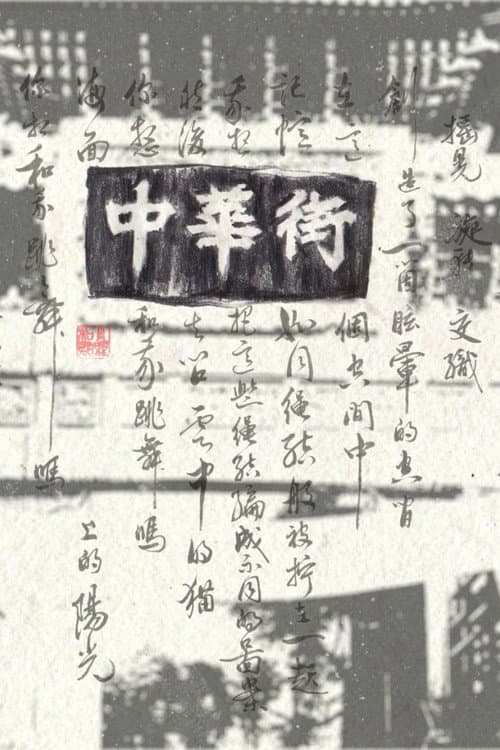 搖晃 交織
創造了一個眩暈的空間
在這個空間中
記憶如同繩結般被拧在一起
我想把這些繩結編成不同的圖案
然後去 雲中的貓
你想和我跳舞嗎
海面上的陽光
你想和我跳跳舞嗎
中華街